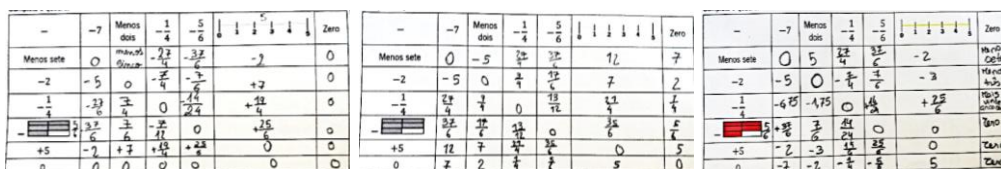 − −7 Menos dois −1/4 −5/6 0 1 2 3 4 5 Zero
Menos sete 0 menos cinco −27/4 −37/6 −2 0
−2 −5 0 −7/4 −7/6 +7 0
−1/4 7/4 0 −14/24 +19/4 0
− 5/6 37/6 7/6 −7/12 0 +25/6 0
+5 −2 +7 +19/4 +25/6 0 0
0 0 0 0 0 0 0
− −7 Menos dois −1/4 −5/6 0 1 2 3 4 5 Zero
Menos sete 0 −5 27/4 37/6 12 7
−2 −5 0 7/4 7 2
−1/4 27/4 7/4 0 13/12 21/4 1/4
− 37/6 13/12 0 35/6 5/6
+5 12 7 35/6 0 5
0 7 2 5 0
− −7 Menos dois −1/4 −5/6 0 1 2 3 4 5 Zero
Menos sete 0 5 27/4 37/6 −2
−2 −5 0 −7/4 7/6 −3
−1/4 −6,75 −1,75 0 +25/6
− 5/6 +37/6 7/6 14/24 0 0 Zero
+5 −2 −3 25/6 0
0 −7 −2 5